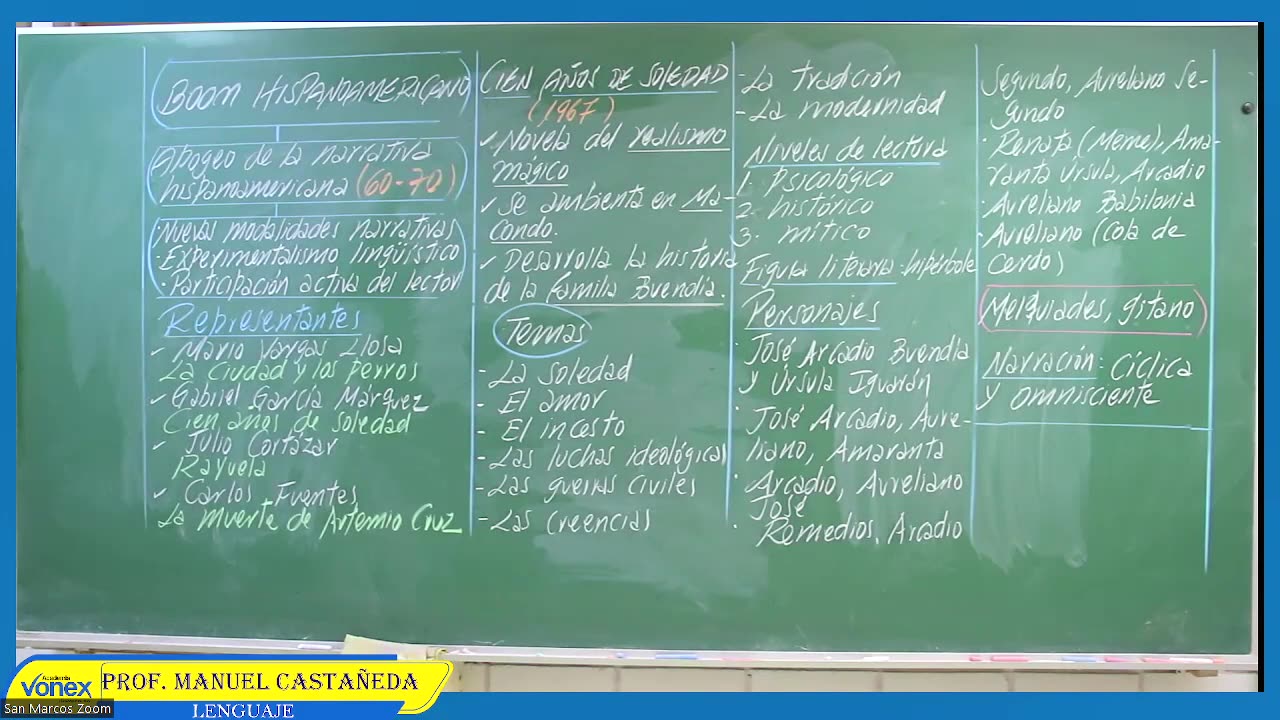 BOOM HISPANOAMERICANO
Apogeo de la narrativa
hispanoamericana (60-70)
·Nuevas modalidades narrativas
·Experimentalismo lingüístico
·Participación activa del lector
Representantes
✓ Mario Vargas Llosa
La ciudad y los perros
✓ Gabriel García Márquez
Cien años de soledad
✓ Julio Cortázar
Rayuela
✓ Carlos Fuentes
La muerte de Artemio Cruz
CIEN AÑOS DE SOLEDAD
(1967)
✓ Novela del realismo
mágico
✓ Se ambienta en Ma-
condo.
✓ Desarrolla la historia
de la familia Buendía.
Temas
- La soledad
- El amor
- El incesto
- Las luchas ideológicas
- Las guerras civiles
- Las creencias
- La tradición
- La modernidad
Niveles de lectura
1. Psicológico
2. histórico
3. mítico
Figura literaria: hipérbole
Personajes
· José Arcadio Buendía
y Úrsula Iguarán
· José Arcadio, Aure-
liano, Amaranta
· Arcadio, Aureliano
José
· Remedios, Arcadio
Segundo, Aureliano Se-
gundo
· Renata (Meme), Ama-
ranta Úrsula, Arcadio
· Aureliano Babilonia
· Aureliano (cola de
cerdo)
Melquiades, gitano
Narración: Cíclica
y omnisciente
Academia
vonex
PROF. MANUEL CASTAÑEDA
LENGUAJE
San Marcos Zoom